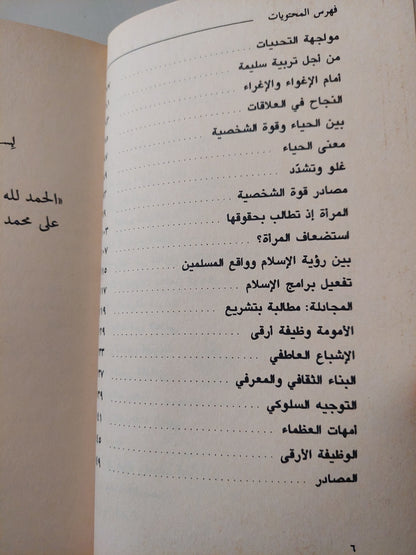 فهرس المحتويات
مواجهة التحديات
من أجل تربية سليمة
أمام الإغواء والإغراء
النجاح في العلاقات
بين الحياء وقوة الشخصية
معنى الحياء
غلو وتشدّد
مصادر قوة الشخصية
المرأة إذ تطالب بحقوقها
استضعاف المرأة؟
بين رؤية الإسلام وواقع المسلمين
تفعيل برامج الإسلام
المجادلة: مطالبة بتشريع
الأمومة وظيفة أرقى
الإشباع العاطفي
البناء الثقافي والمعرفي
التوجيه السلوكي
أمهات العظماء
الوظيفة الأرقى
المصادر
٦
«الحمد لله
على محمد